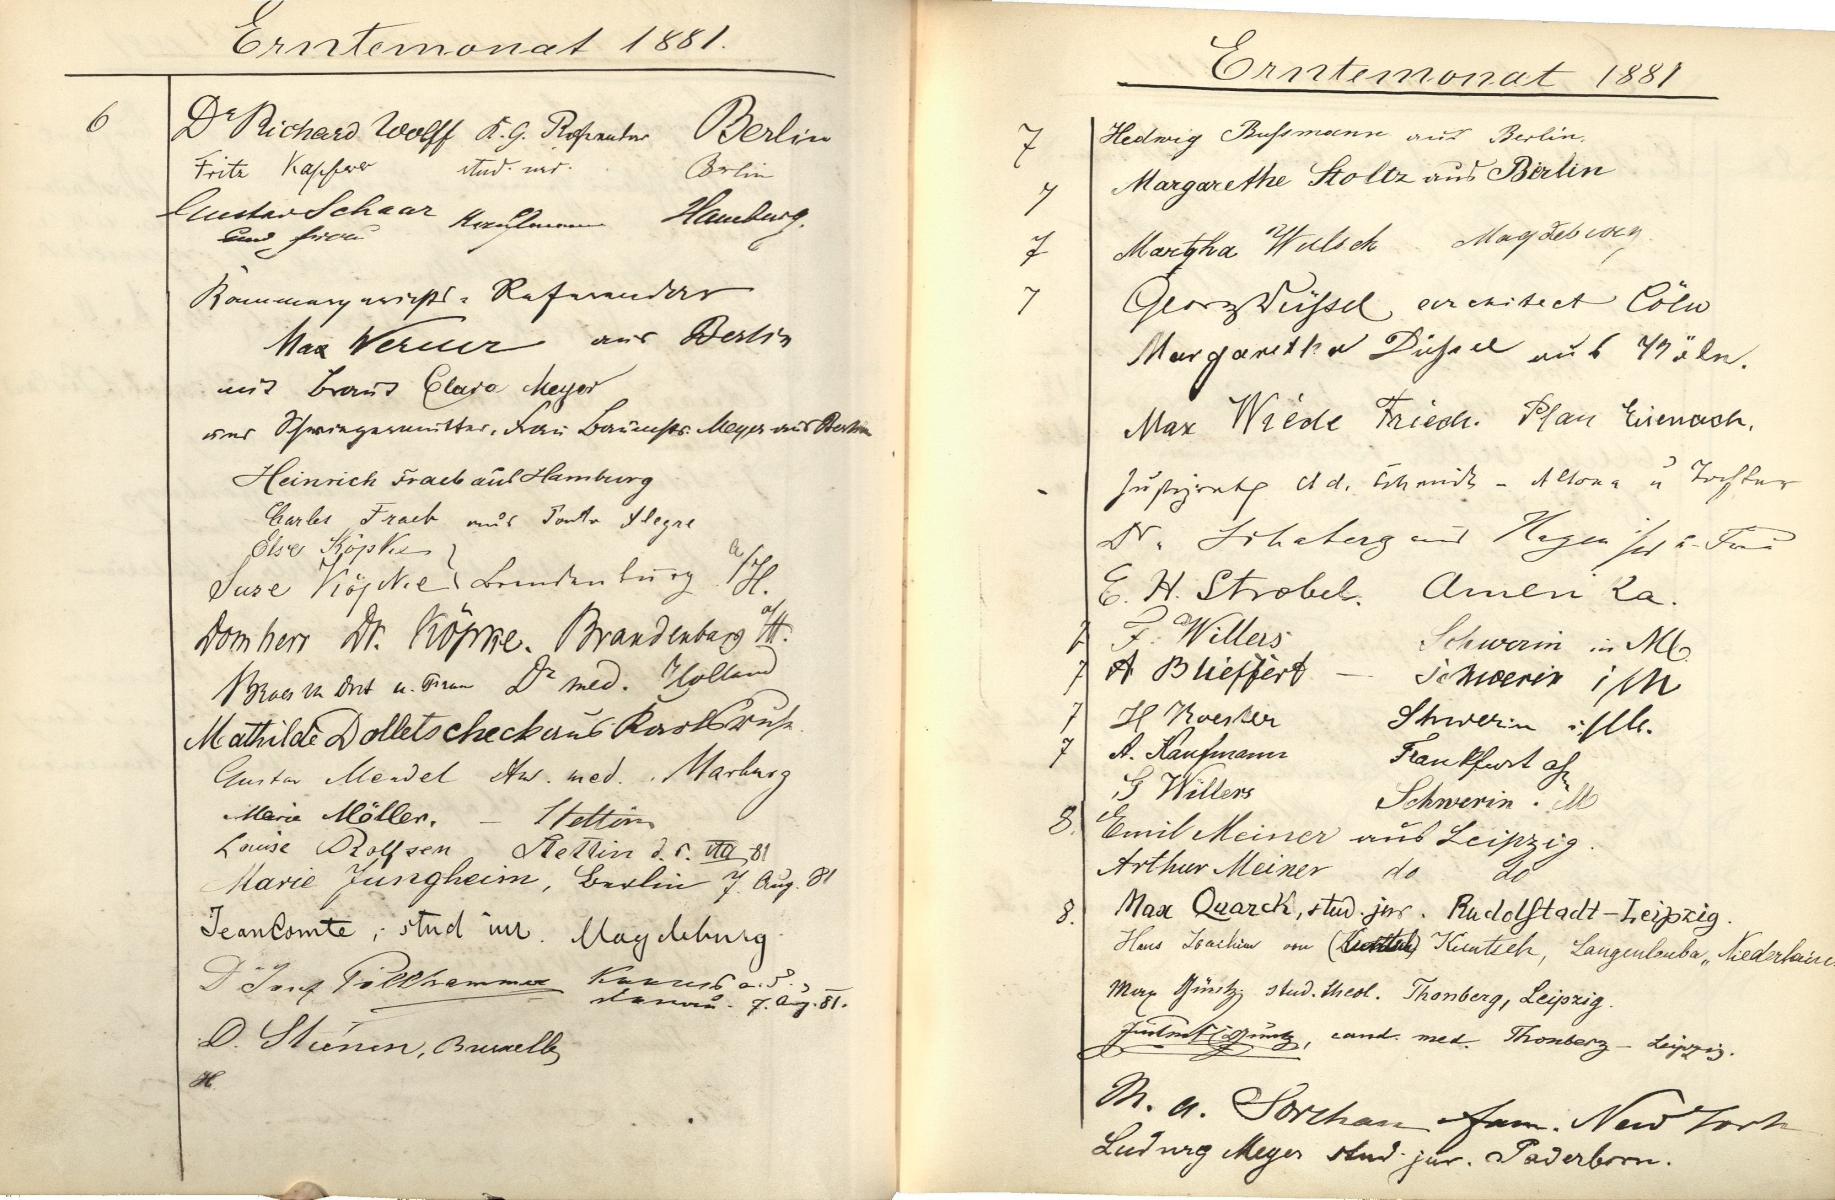 Erntemonat 1881.
6
Dr Richard Wolff K. G. Referendar Berlin
Fritz stud. Berlin
Gustav Schaar Kaufmann Hamburg.
und Frau
Kammergerichts-Referendar
Max Werner aus Berlin
mit Braut Clara Meyer
und Schwiegermutter, Frau Meyer aus Berlin
Heinrich Fraeb aus Hamburg
Charles Fraeb aus Porto Alegre
Else Köpke
Suse Köpke Brandenburg a/H.
Domherr Dr. Köpke. Brandenburg a/H.
u. Frau Dr med. Holland
Mathilde Dolletscheck aus Karlsruhe
Gustav Mendel med. Marburg
Marie Möller. – Stettin
Louise Rolfsen Stettin d. VIII 81
Marie Jungheim, Berlin 7. Aug. 81
Jean Comte, stud iur. Magdeburg
Dr Josef Pöllhammer a. d.
7. Aug. 81.
D. Bruxelles
H
Erntemonat 1881
7 Hedwig Bussmann aus Berlin.
7 Margarethe Stoltz aus Berlin
7 Martha Wulsch Magdeburg
7 Georg Düssel architect Cöln
Margaretha Düssel aus Köln.
Max Wiede Friedr. Plan Eisenach.
Justizrath Ad. Schmidt - Altona u Tochter
Dr. aus Hagen u. Frau
E. H. Strobel. Amerika.
7 F. Willers Schwerin in M
7 A Blieffert — Schwerin i/M
7 H Koester Schwerin i/M.
7 A. Kaufmann Frankfurt a/
G Willers Schwerin. M
8. Emil Meiner aus Leipzig.
Arthur Meiner do do
8. Max Quarck, stud. jur. Rudolstadt-Leipzig.
Hans Joachim von Kuntsch, Langenleuba-Niederhain
Max Güntz, stud. theol. Thonberg, Leipzig.
Güntz, cand. med. Thonberg - Leipzig.
M. A. Sorchan fam. New York
Ludwig Meyer stud. jur. Paderborn.